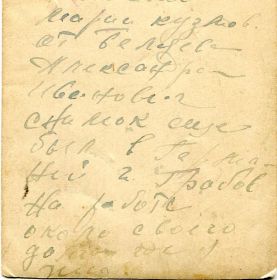 марии кузмов.
от Беляева
Александра
Ивановича
снимок еще
был в Герма
ний г. Грабов
На работе
около своего